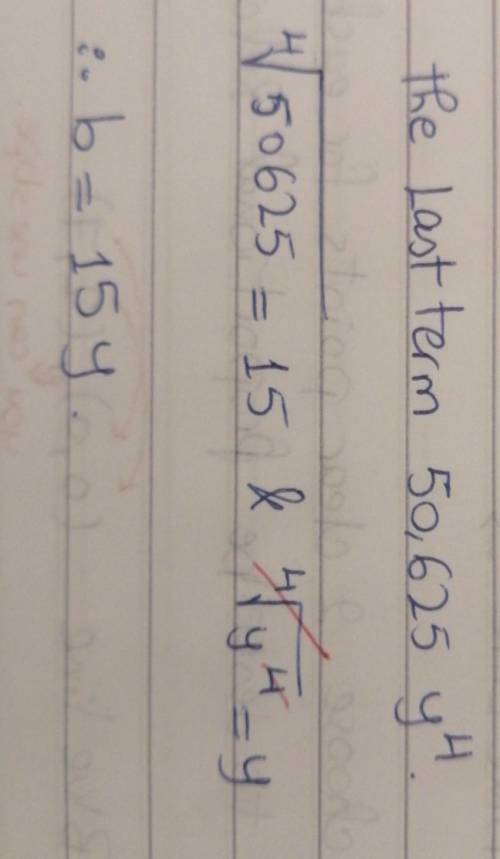 the Last term 50,625 y⁴.
∜50625 = 15 & ∜y⁴ = y
∴ b = 15 y.